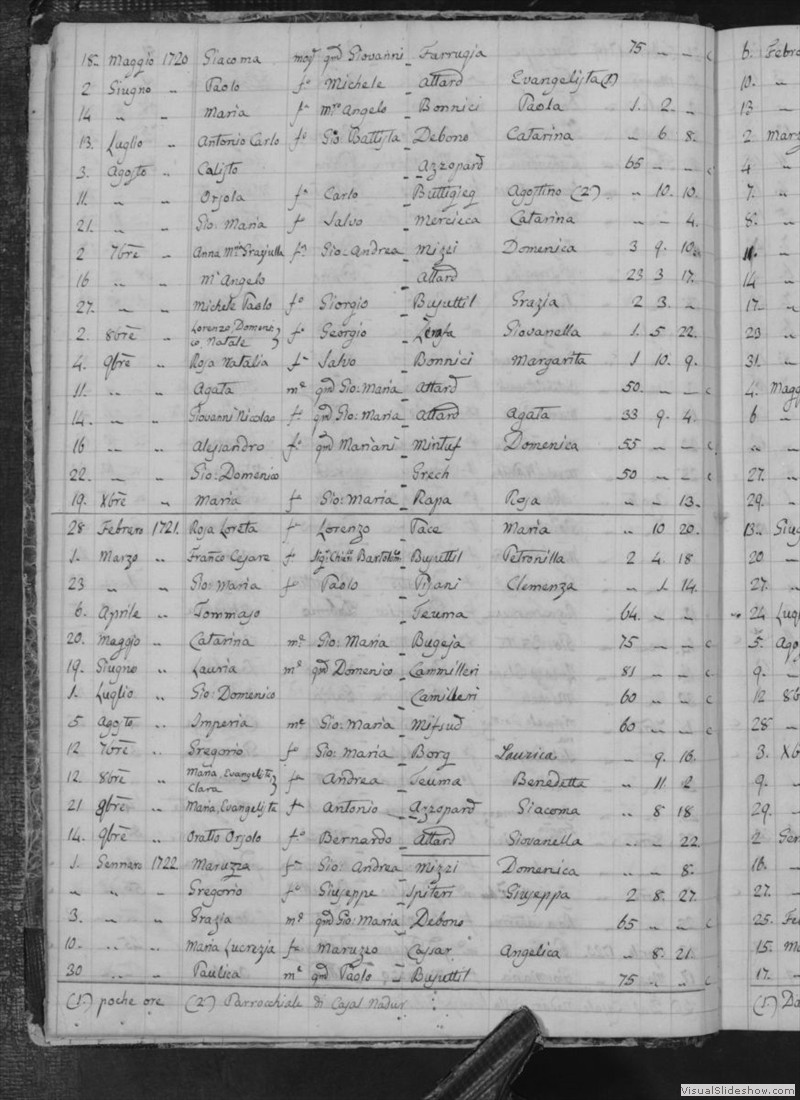 18 Maggio 1720 Giacoma mog qm̃ Giovanni Farrugia 75 .. .. c
2 Giugno .. Paolo fo Michele Attard Evangelista (1)
14 .. .. Maria fa Mro Angelo Bonnici Paola 1. 2. ..
13. Luglio .. Antonio Carlo fo Gio Battista Debono Catarina .. 6 8.
3. Agosto .. Calisto Azzopard 65 .. .. c
11. .. .. Orsola fa Carlo Buttigieg Agostino (2) .. 10. 10.
21. .. .. Gio: Maria fo Salvo Mercieca Catarina .. .. 4.
2 7bre .. Anna Ma Graziulla fa Gio. Andrea Mizzi Domenica 3 9. 10.
16 .. .. Mo Angelo Attard 23 3 17.
27. .. .. Michele Paolo fo Giorgio Busuttil Grazia 2 3. ..
2. 8bre .. Lorenzo, Domenico, Natale fo Georgio Giovanella 1. 5 22.
4. 9bre .. Rosa Natalia fa Salvo Bonnici Margarita 1 10. 9.
11. .. .. Agata me qm̃ Gio: Maria Attard 50. .. .. c
14. .. .. Giovanni Nicolao fo qm̃ Gio: Maria Attard Agata 33 9. 4.
16 .. .. Alessandro fo qm̃ Marianì Mintuf Domenica 55 .. .. c
22. .. .. Gio: Domenico Grech 50 .. .. c
19. Xbre .. Maria fa Gio: Maria Rapa Rosa .. .. 13.
28 Febraro 1721. Rosa Loreta fa Lorenzo Pace Maria .. 10 20.
1. Marzo .. Franco Cesare fo Bartolom Busuttil Petronilla 2 4. 18
23 .. .. Gio: Maria fo Paolo Pisani Clemenza .. 1. 14.
6. Aprile .. Tommaso Teuma 64. .. ..
20. Maggio .. Catarina me Gio: Maria Bugeja 75 .. .. c
19. Giugno .. Lauria me qm̃ Domenico Cammilleri 81 .. .. c
1. Luglio .. Gio: Domenico Camilleri 60 .. .. c
5 Agosto .. Imperia me Gio: Maria Mifsud 60 .. .. c
12 7bre .. Gregorio fo Gio: Maria Borg Laurica .. 9. 16.
12. 8bre .. Maria, Evangelista Clara fa Andrea Teuma Benedetta .. 11. 2
21 9bre .. Maria, Evangelista fa Antonio Azzopard Giacoma .. 8 18
14. 9bre .. Oratio Orsolo fo Bernardo Attard Giovanella .. .. 22.
1. Gennaro 1722. Maruzza fa Gio: Andrea Mizzi Domenica .. .. 8.
.. .. .. Gregorio fo Giuseppe Spiteri Giuseppa 2 8. 27.
3. .. .. Grazia me qm̃ Gio: Maria Debono 65 .. .. c
10. .. .. Maria Lucrezia fa Maruzzo Casar Angelica .. 8. 21.
30 .. .. Paulica me qm̃ Paolo Busuttil 75 .. .. c
(1.) poche ore (2.) Parrocchiale di Casal Nadur
6. Febro
10. ..
13 ..
2. Marz
4 ..
7. ..
8. ..
11. ..
14 ..
17. ..
23 ..
31. ..
4. Magg
6 ..
.. ..
27. ..
29. ..
13. Giug
20 ..
27. ..
24 Lugl
5. Ago
9. ..
12 8b
28 ..
3. Xb
9. ..
29. ..
2 Gen
16. ..
27. ..
25. Fe
15. Ma
17. ..
(1.) Da
VisualSlideshow.com